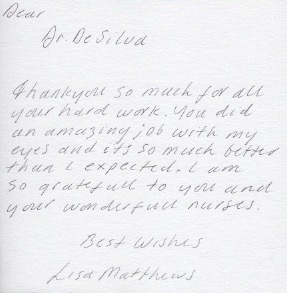 Dear
Dr. De Silva
Thankyou so much for all
your hard work. You did
an amazing job with my
eyes and its so much better
than I expected. I am
so gratefull to you and
your wonderfull nurses.
Best Wishes
Lisa Matthews